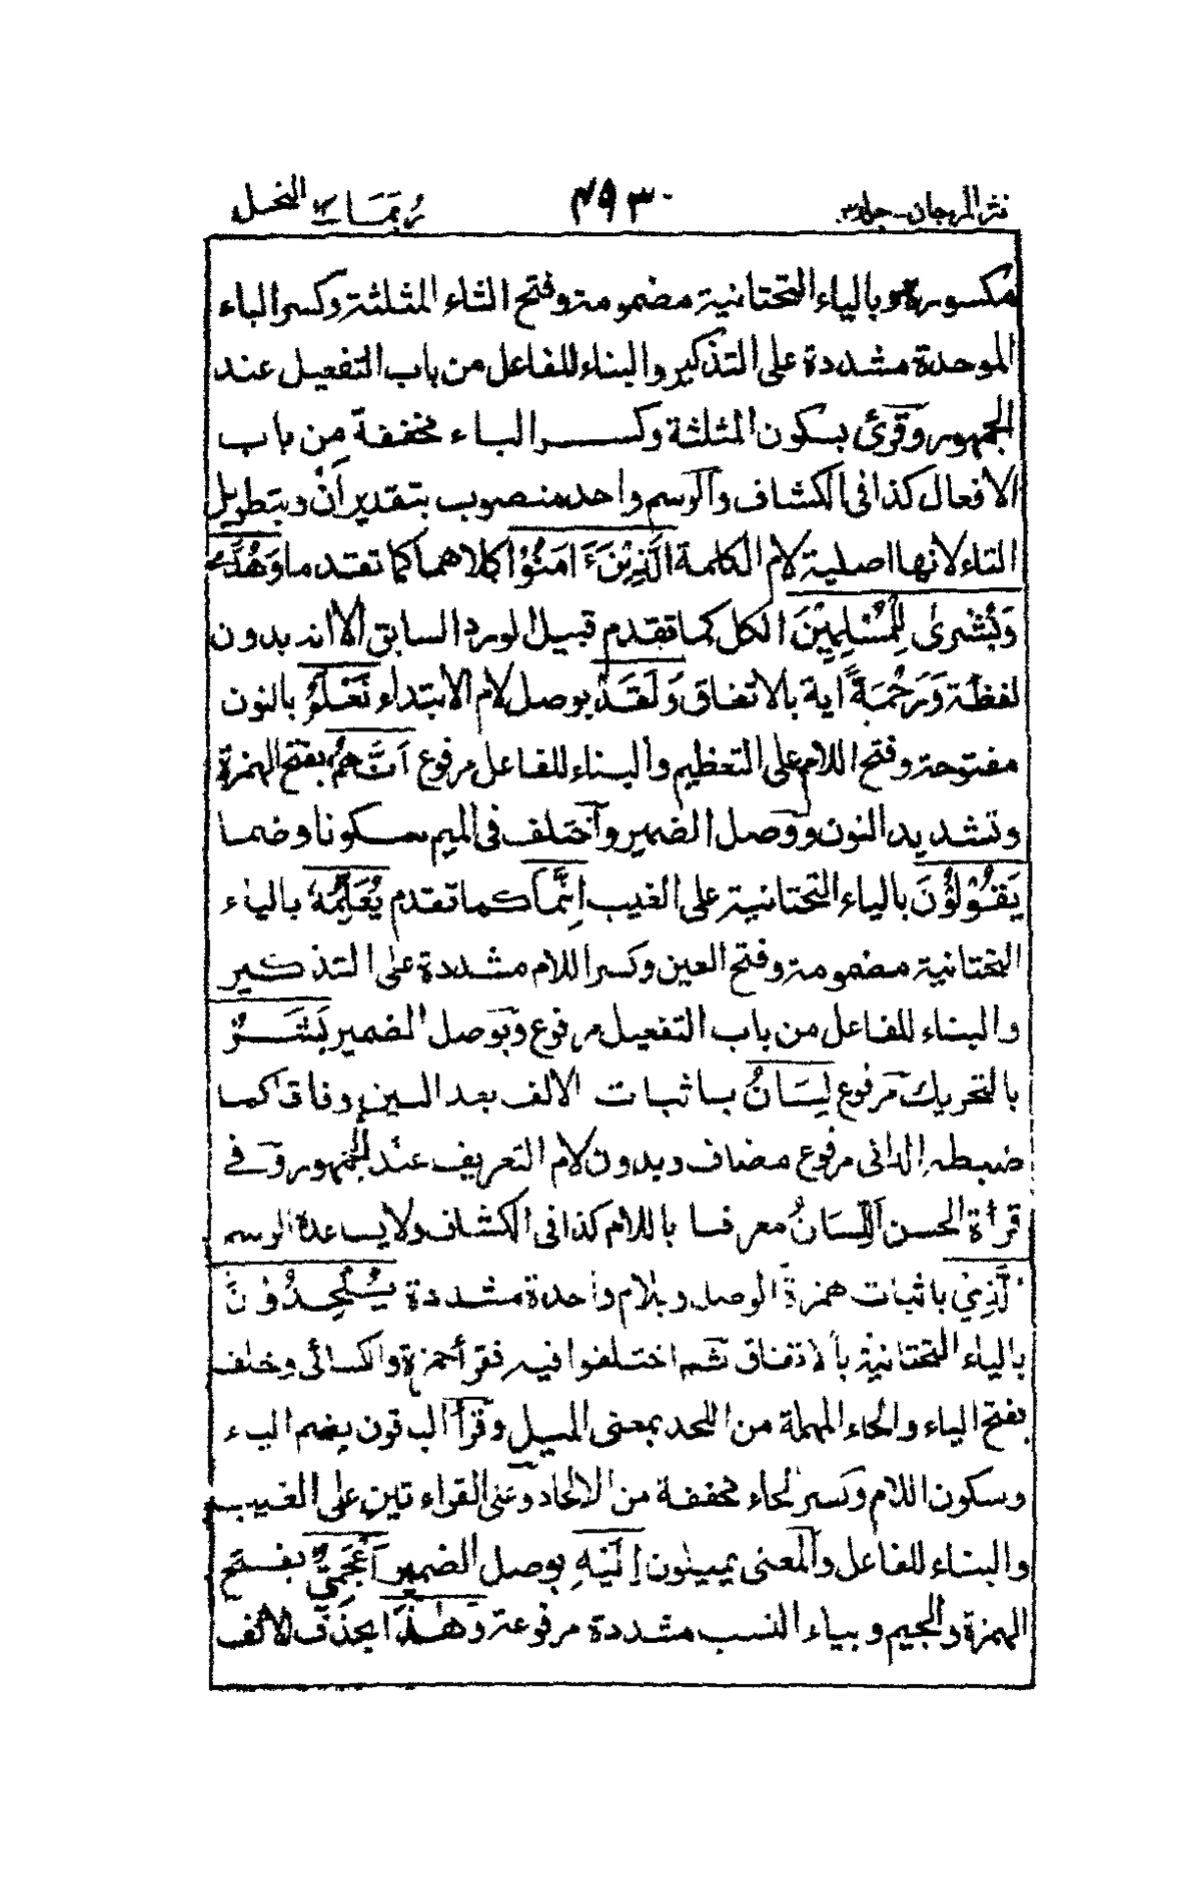 نثر المرجان - جلد ٣
٤٩٣
ربما ١٤ النحل
مكسورة وبالياء التحتانية مضمومة وفتح الثاء المثلثة وكسر الباء
الموحدة مشددة على التذكير والبناء للفاعل من باب التفعيل عند
الجمهور وقرئ بسكون المثلثة وكسر الباء مخففة من باب
الافعال كذا فى الكشاف والرسم واحد منصوب بتقدير أن وبتطويل
التاء لانها اصلية لام الكلمة الَّذِيْنَ ءَامَنُوْا كلاهما كما تقدما وَهُدًى
وَبُشْرىٰ لِلْمُسْلِمِيْنَ الكل كما تقدم قبيل الورد السابق الا انه بدون
لفظة وَرَحْمَةً اية بالاتفاق وَلَقَدْ بوصل لام الابتداء نَعْلَمُ بالنون
مفتوحة وفتح اللام على التعظيم والبناء للفاعل مرفوع اَنَّهُمْ بفتح الهمزة
وتشديد النون ووصل الضمير واختلف فى الميم سكونا وضما
يَقُوْلُوْنَ بالياء التحتانية على الغيب اِنَّمَا كما تقدم يُعَلِّمُهٗ بالياء
التحتانية مضمومة وفتح العين وكسر اللام مشددة على التذكير
والبناء للفاعل من باب التفعيل مرفوع وبوصل الضمير بَشَرٌ
بالتحريك مرفوع لِسَانُ باثبات الالف بعد السين وفاقا كما
ضبطه الدانى مرفوع مضاف وبدون لام التعريف عند الجمهور وفى
قرأة الحسن اَللِّسَانُ معرفا باللام كذا فى الكشاف ولا يساعده الرسم
الَّذِيْ باثبات همزة الوصل وبلام واحدة مشددة يُلْحِدُوْنَ
بالياء التحتانية بالاتفاق ثم اختلفوا فيه فقرأ حمزة والكسائى وخلف
بفتح الياء والحاء المهملة من اللحد بمعنى الميل وقرأ الباقون بضم الياء
وسكون اللام وكسر الحاء مخففة من الالحاد وعلى القراءتين على الغيب
والبناء للفاعل والمعنى يميلون اِلَيْهِ بوصل الضمير اَعْجَمِيٌّ بفتح
الهمزة والجيم وبياء النسب مشددة مرفوعة وَهٰذَا بحذف الالف